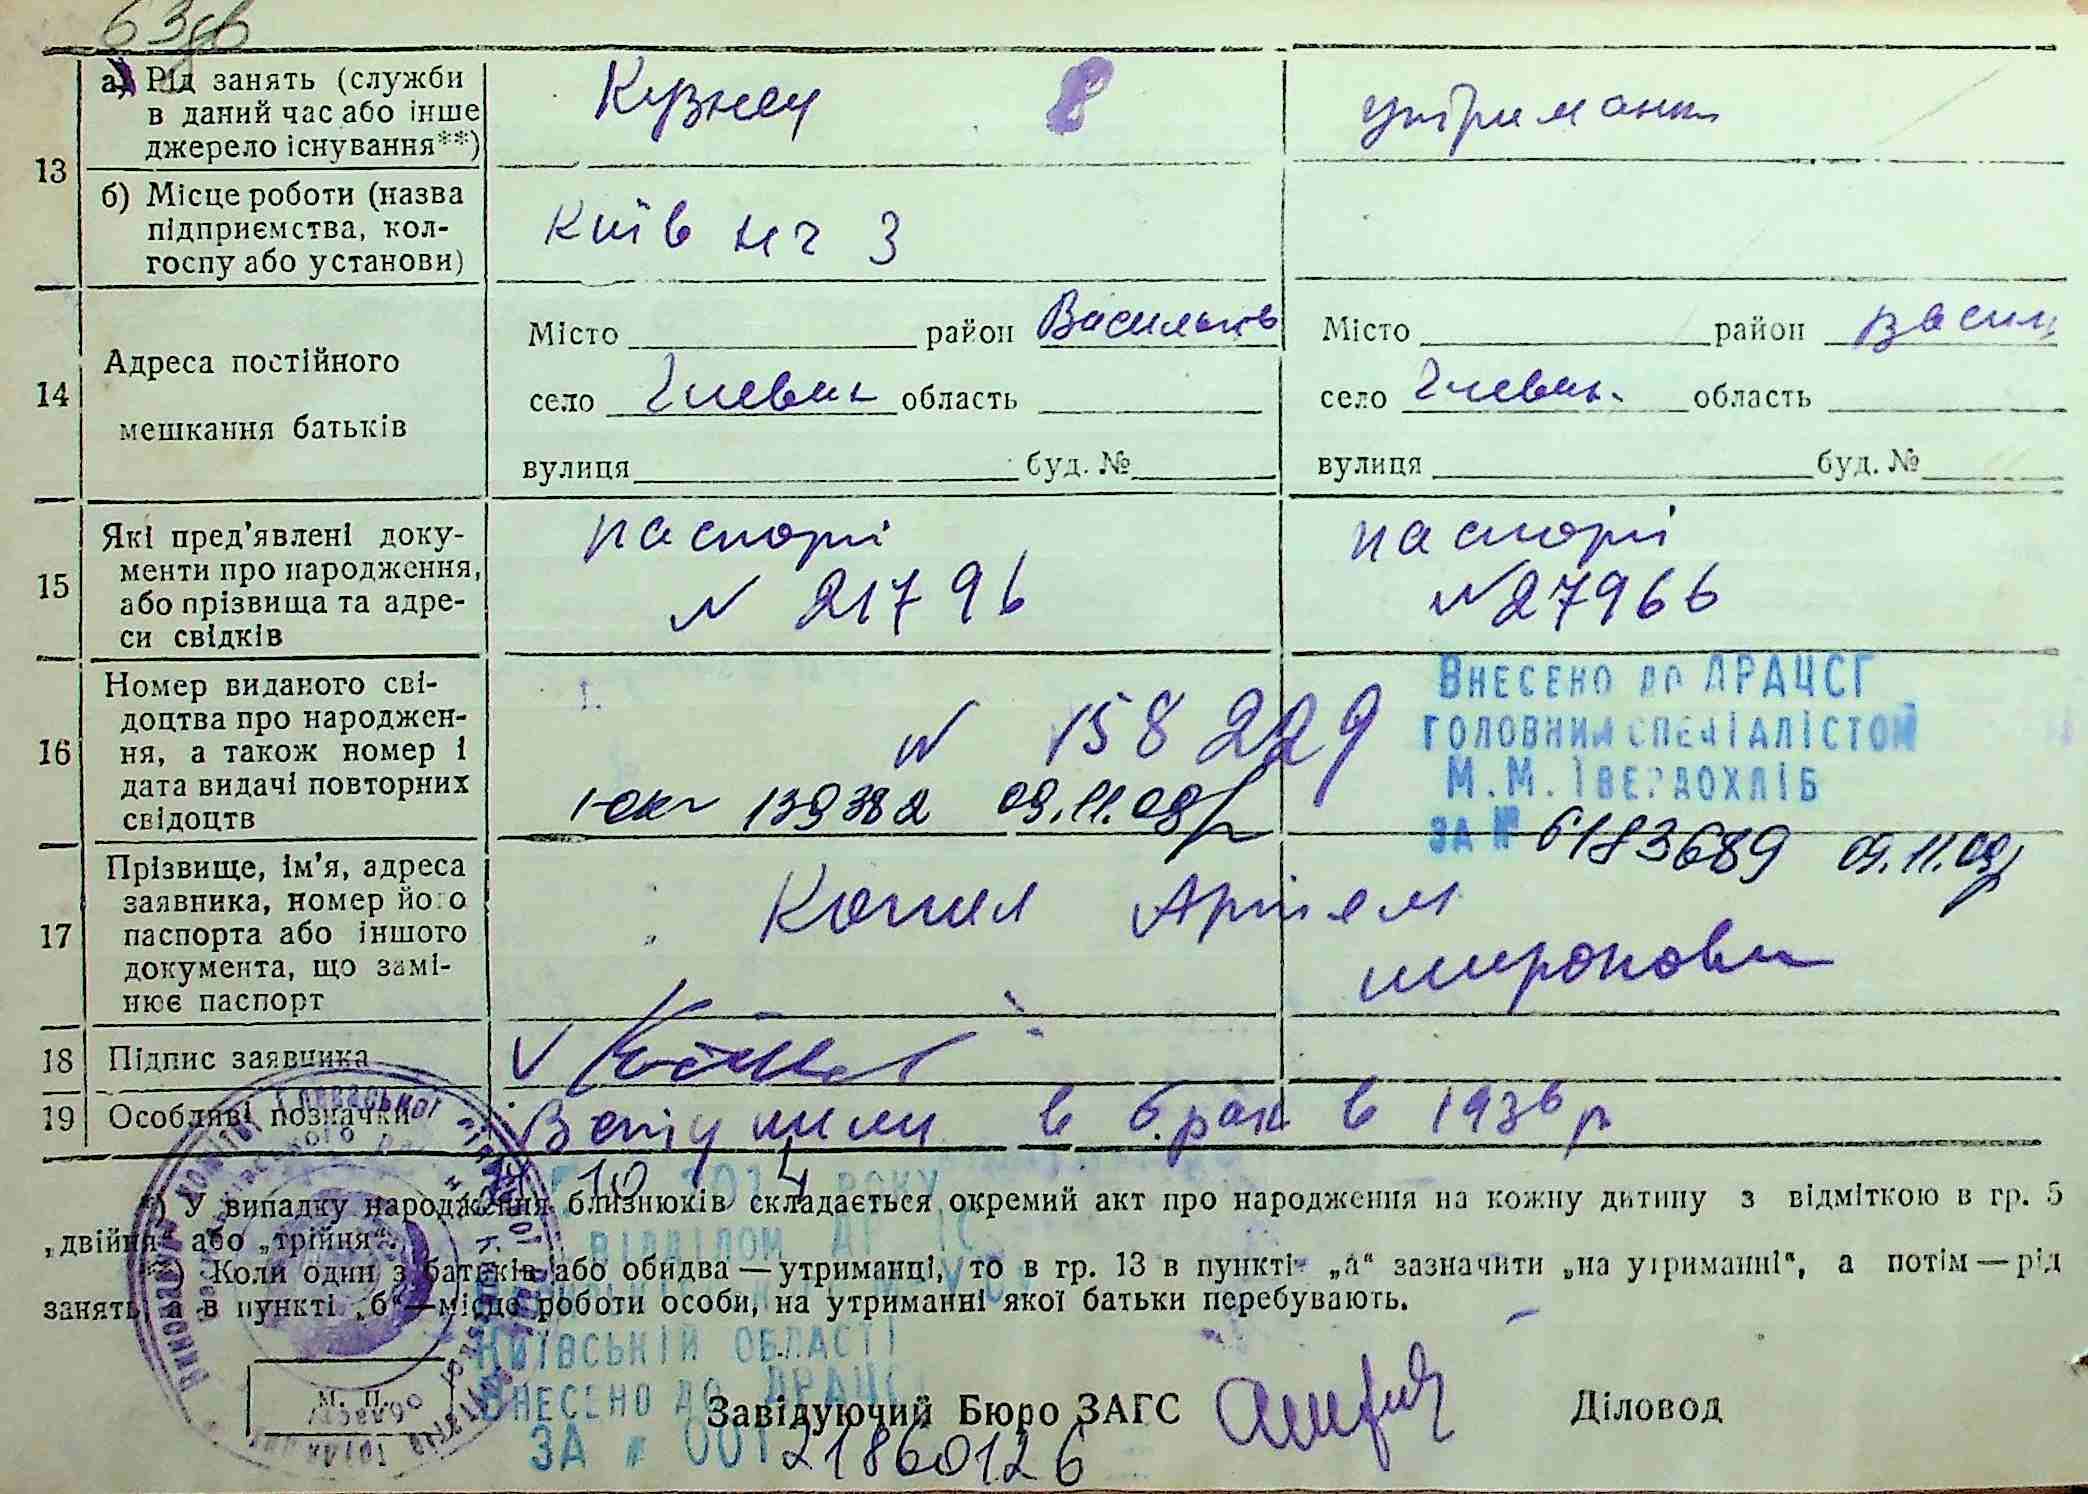 13
а) Рід занять (служби
в даний час або інше
джерело існування**)
Кузнец
утриманк
б) Місце роботи (назва
підприємства, кол-
госпу або установи)
Київ нч 3
14
Адреса постійного
мешкання батьків
Місто район Васильків
село Глеваха область
вулиця буд. №
Місто район Васил
село Глевах. область
вулиця буд. №
15
Які пред'явлені доку-
менти про народження,
або прізвища та адре-
си свідків
паспорт
№ 21796
паспорт
№ 27966
16
Номер виданого сві-
доцтва про народжен-
ня, а також номер і
дата видачі повторних
свідоцтв
№ 158229
139382 09.11.09р
Внесено до ДРАЦСГ
головним спеціалістом
М.М. Твердохліб
за № 6183689 09.11.09р
17
Прізвище, ім'я, адреса
заявника, номер його
паспорта або іншого
документа, що замі-
нює паспорт
Артем
миронови
18
Підпис заявника
19
Особливі позначки
Вступили в брак в 1936 р
*) У випадку народження близнюків складається окремий акт про народження на кожну дитину з відміткою в гр. 5
„двійня" або „трійня".
**) Коли один з батьків або обидва — утриманці, то в гр. 13 в пункті „а" зазначити „на утриманні", а потім — рід
занять, а в пункті „б" — місце роботи особи, на утриманні якої батьки перебувають.
Київській області
Внесено до ДРАЦСГ
за № 00121860126
М. П.
Завідуючий Бюро ЗАГС
Діловод